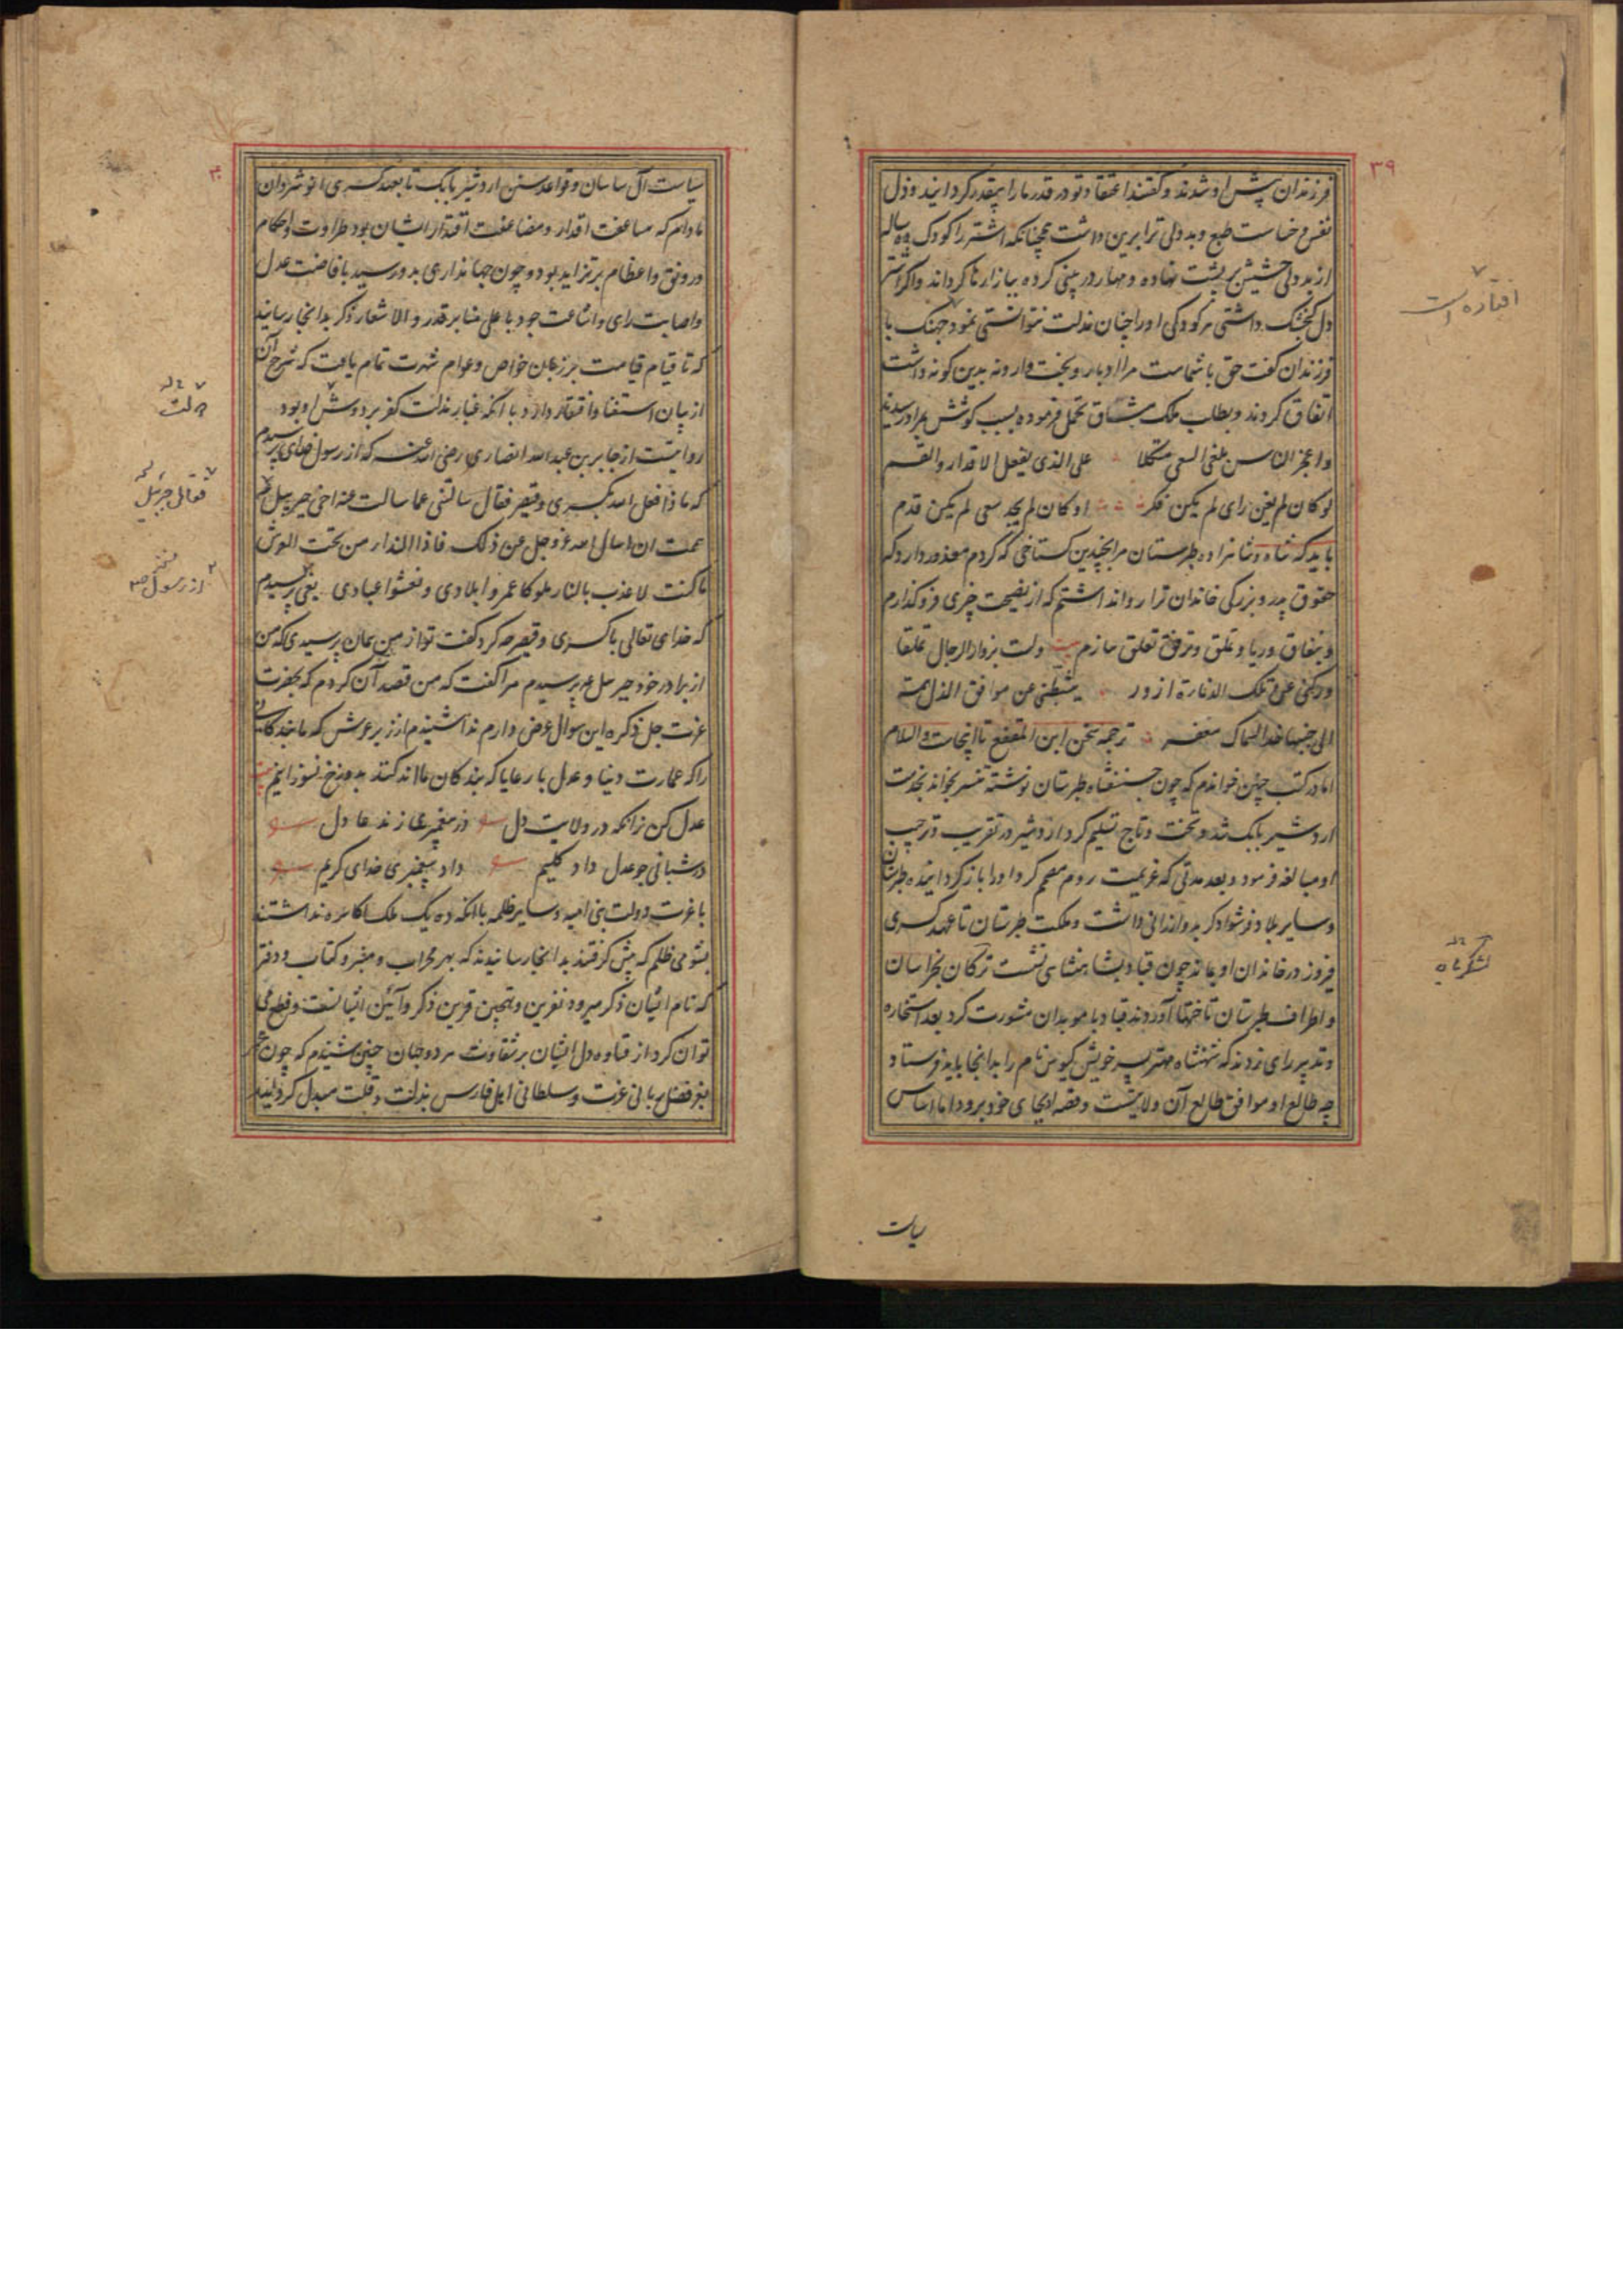 ۳۹
فرزندان پیش او شدند و گفتند اعتقاد تو در قدر ما را بیقدر گردانید و ذل
نفس و خساست طبع و بددلی ترا برین داشت همچنانکه اشتر را کودک ده ساله
از بددلی حشیش بر پشت نهاده و مهار در بینی کرده ببازارها گرداند و اگر اشتر
دل گنجشک داشتی هر کودکی او را چنان مذلت نتوانستی نمود جنگ با
فرزندان گفت حق با شماست مرا ادبار و بخت وارونه بدین گونه داشت
اتفاق کردند و بطلب ملک مشاق تحمل فرموده بسبب کوشش بمراد رسیدند
واعجز الناس یلغی السعی متکلا علی الذی یفعل الاقدار والقسم
لو کان لم یغن رای لم یکن فکر او کان لم یجد سعی لم یکن قدم
باید که شاه و شاهزاده طبرستان مرا بچندین گستاخی که کردم معذور دارد که
حقوق پدر و بزرگی خاندان ترا روا نداشتم که از نصیحت چیزی فرو گذارم
و بنفاق و ریا و تملق و ترفق تعلق سازم بیت ولست بزوار الرجال تملقا
ورکنی عن تلک الدنائة ازور یثبطنی عن موافق الذل همة
الی جنبها خد السماک معفر ترجمه سخن ابن المقفع تا اینجاست والسلام
اما در کتب چنین خواندم که چون جسنفشاه طبرستان نوشته تنسر بخواند بخدمت
اردشیر بابک شد و تخت و تاج تسلیم کرد اردشیر در تقریب و ترحیب
او مبالغه فرمود و بعد مدتی که عزیمت روم مصمم کرد او را باز گردانیده طبرستان
و سایر بلاد فرشوادگر بدو ارزانی داشت و ملکت طبرستان تا عهد کسری
فیروز در خاندان او بماند چون قباد بشاهنشاهی نشست ترکان بخراسان
و اطراف طبرستان تاختها آوردند قباد با موبدان مشورت کرد بعد استخاره
و تدبیر رای زدند که شهنشاه مهتر پسر خویش کیوس نام را بدانجا باید فرستاد
چه طالع او موافق طالع آن ولایتست و قصه او بجای خود برود اما اساس
سیاست
افتاده است
سیاست آل ساسان و قواعد سنن اردشیر بابک تا بعهد کسری انوشروان
مادام که مساعفت اقدار و مضاعفت اقتدار ایشان بود طراوت و احکام
و رونق و اعظام بر تزاید بود و چون جهانداری بدو رسید با فاضت عدل
و اصابت رای و اشاعت جود با علی منابر قدر و الا شعار ذکر بدانجا رسانید
که تا قیام قیامت بر زبان خواص و عوام شهرت تمام یافت که شرح آن
از بیان استغنا و افتقار دارد با آنکه غبار مذلت کفر بر دوش او بود
روایتست از جابر بن عبدالله انصاری رضی الله عنه که از رسول خدای پرسیدم
که ما ذا فعل الله بکسری و قیصر فقال سالتنی عما سالت عنه اخی جبرییل
هممت ان اسال الله عز و جل عن ذلک فاذا النداء من تحت العرش
ما کنت لاعذب بالنار ملوکا عمروا بلادی و نعشوا عبادی یعنی پرسیدم
که خدای تعالی با کسری و قیصر چه کرد گفت تو از من همان پرسیدی که من
از برادر خود جبرییل پرسیدم مرا گفت که من قصد آن کردم که بحضرت
عزت جل ذکره این سوال عرض دارم ندا شنیدم از زیر عرش که ما بندگانی
را که عمارت دنیا و عدل با رعایا که بندگان مااند کنند بدوزخ نسوزانیم بیت
عدل کن زانکه در ولایت دل در پیغمبری زند عادل
در شبانی چو عدل داد کلیم داد پیغمبری خدای کریم
با عزت دولت بنی امیه و سایر ظلمه با آنکه ده یک ملک اکاسره نداشتند
بشومی ظلم که پیش گرفتند بدانجا رسانیدند که بهر محراب و منبر و کتاب و دفتر
که نام ایشان ذکر میرود نفرین و تهجین قرین ذکر و آئین ایشانست و قطع می
توان کرد از قساوه دل ایشان بر شقاوت هر دو جهان چنین شنیدم که چون
بفر فضل ربانی عزت و سلطانی اهل فارس بذلت و قلت مبدل گردانید
فقال جبرئیل
از رسول ص